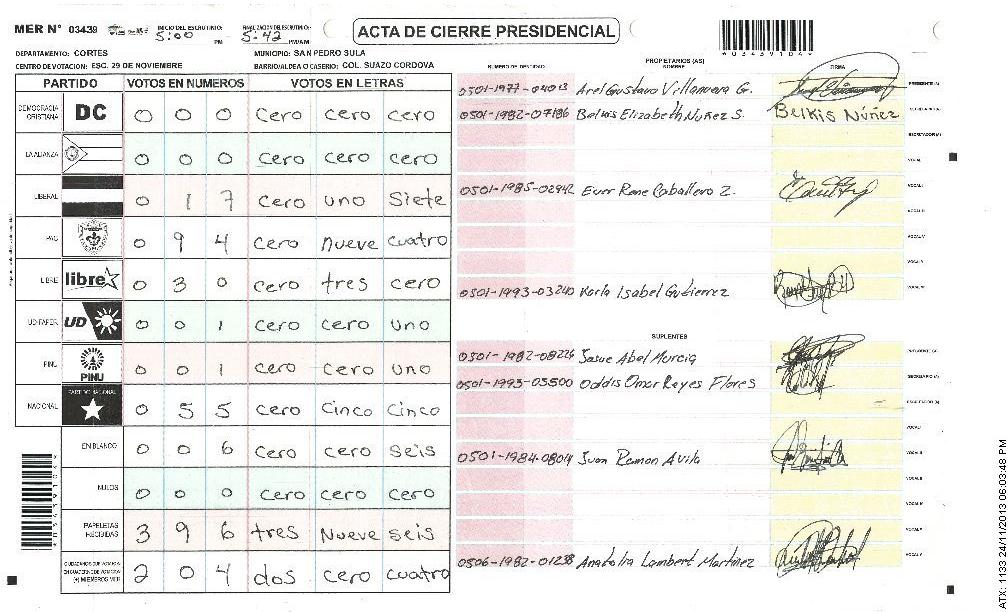 MER N° 03439 INICIO DEL ESCRUTINIO: 5:00 PM FINALIZACION DEL ESCRUTINIO: 5:42 PM/AM
ACTA DE CIERRE PRESIDENCIAL
*03439104*
DEPARTAMENTO: CORTES MUNICIPIO: SAN PEDRO SULA
CENTRO DE VOTACION: ESC. 29 DE NOVIEMBRE BARRIO/ALDEA O CASERIO: COL. SUAZO CORDOVA
PARTIDO VOTOS EN NUMEROS VOTOS EN LETRAS
DEMOCRACIA CRISTIANA DC 0 0 0 Cero cero cero
LA ALIANZA 0 0 0 Cero cero cero
LIBERAL 0 1 7 Cero uno Siete
PAC 0 9 4 Cero nueve cuatro
LIBRE libre 0 3 0 Cero tres cero
UD-FAPER UD 0 0 1 Cero Cero uno
PINU PINU 0 0 1 Cero Cero uno
NACIONAL PARTIDO NACIONAL 0 5 5 Cero Cinco Cinco
EN BLANCO 0 0 6 Cero cero seis
NULOS 0 0 0 Cero cero cero
PAPELETAS RECIBIDAS 3 9 6 tres Nueve seis
(+) MIEMBROS MER 2 0 4 dos cero cuatro
NUMERO DE IDENTIDAD PROPIETARIOS (AS) NOMBRE FIRMA
0501-1977-04013 Arel Gustavo Villanueva G. PRESIDENTE (A)
0501-1982-07186 Belkis Elizabeth Nuñez S. Belkis Núñez SECRETARIO (A)
ESCRUTADOR (A)
VOCAL I
0501-1985-02942 Ever Rene Caballero Z.
0501-1993-03240 Karla Isabel Gutierrez
SUPLENTES
0501-1982-08226 Josue Abel Murcia
0501-1993-05500 Oddis Omar Reyes Flores SECRETARIO (A)
ESCRUTADOR (A)
0501-1984-0804 Juan Ramon Avila
0506-1982-01238 Anatalia Lambert Martinez
ATX: 1133 24/11/2013 06:03:48 PM